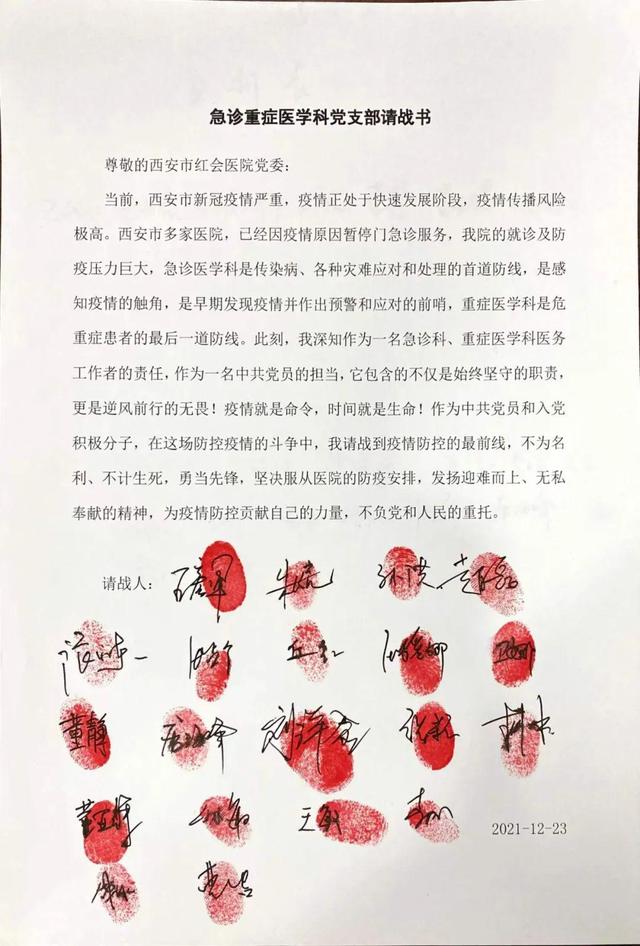 急诊重症医学科党支部请战书
尊敬的西安市红会医院党委：
当前，西安市新冠疫情严重，疫情正处于快速发展阶段，疫情传播风险
极高。西安市多家医院，已经因疫情原因暂停门急诊服务，我院的就诊及防
疫压力巨大，急诊医学科是传染病、各种灾难应对和处理的首道防线，是感
知疫情的触角，是早期发现疫情并作出预警和应对的前哨，重症医学科是危
重症患者的最后一道防线。此刻，我深知作为一名急诊科、重症医学科医务
工作者的责任，作为一名中共党员的担当，它包含的不仅是始终坚守的职责，
更是逆风前行的无畏！疫情就是命令，时间就是生命！作为中共党员和入党
积极分子，在这场防控疫情的斗争中，我请战到疫情防控的最前线，不为名
利、不计生死，勇当先锋，坚决服从医院的防疫安排，发扬迎难而上、无私
奉献的精神，为疫情防控贡献自己的力量，不负党和人民的重托。
请战人：
董静
2021-12-23